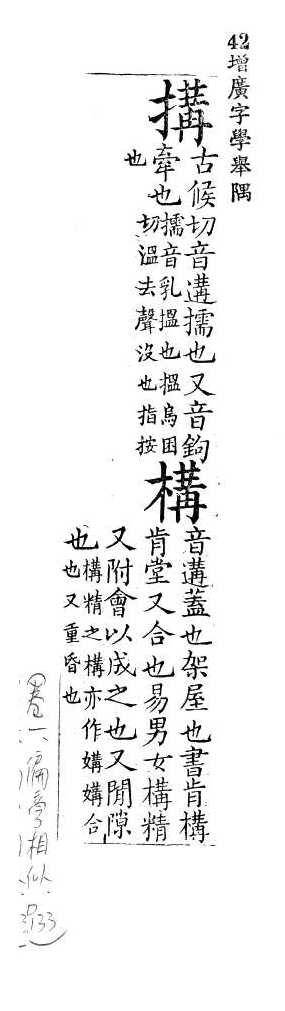 42增廣字學舉隅
搆
古候切音遘擩也又音鉤
牽也擩音乳搵也搵烏困
切溫去聲沒也指按
也
構
音遘蓋也架屋也書肯構
肯堂又合也易男女構精
又附會以成之也又閒隙
也構精之構亦作媾媾合
也又重昏也
卷六偏旁相似